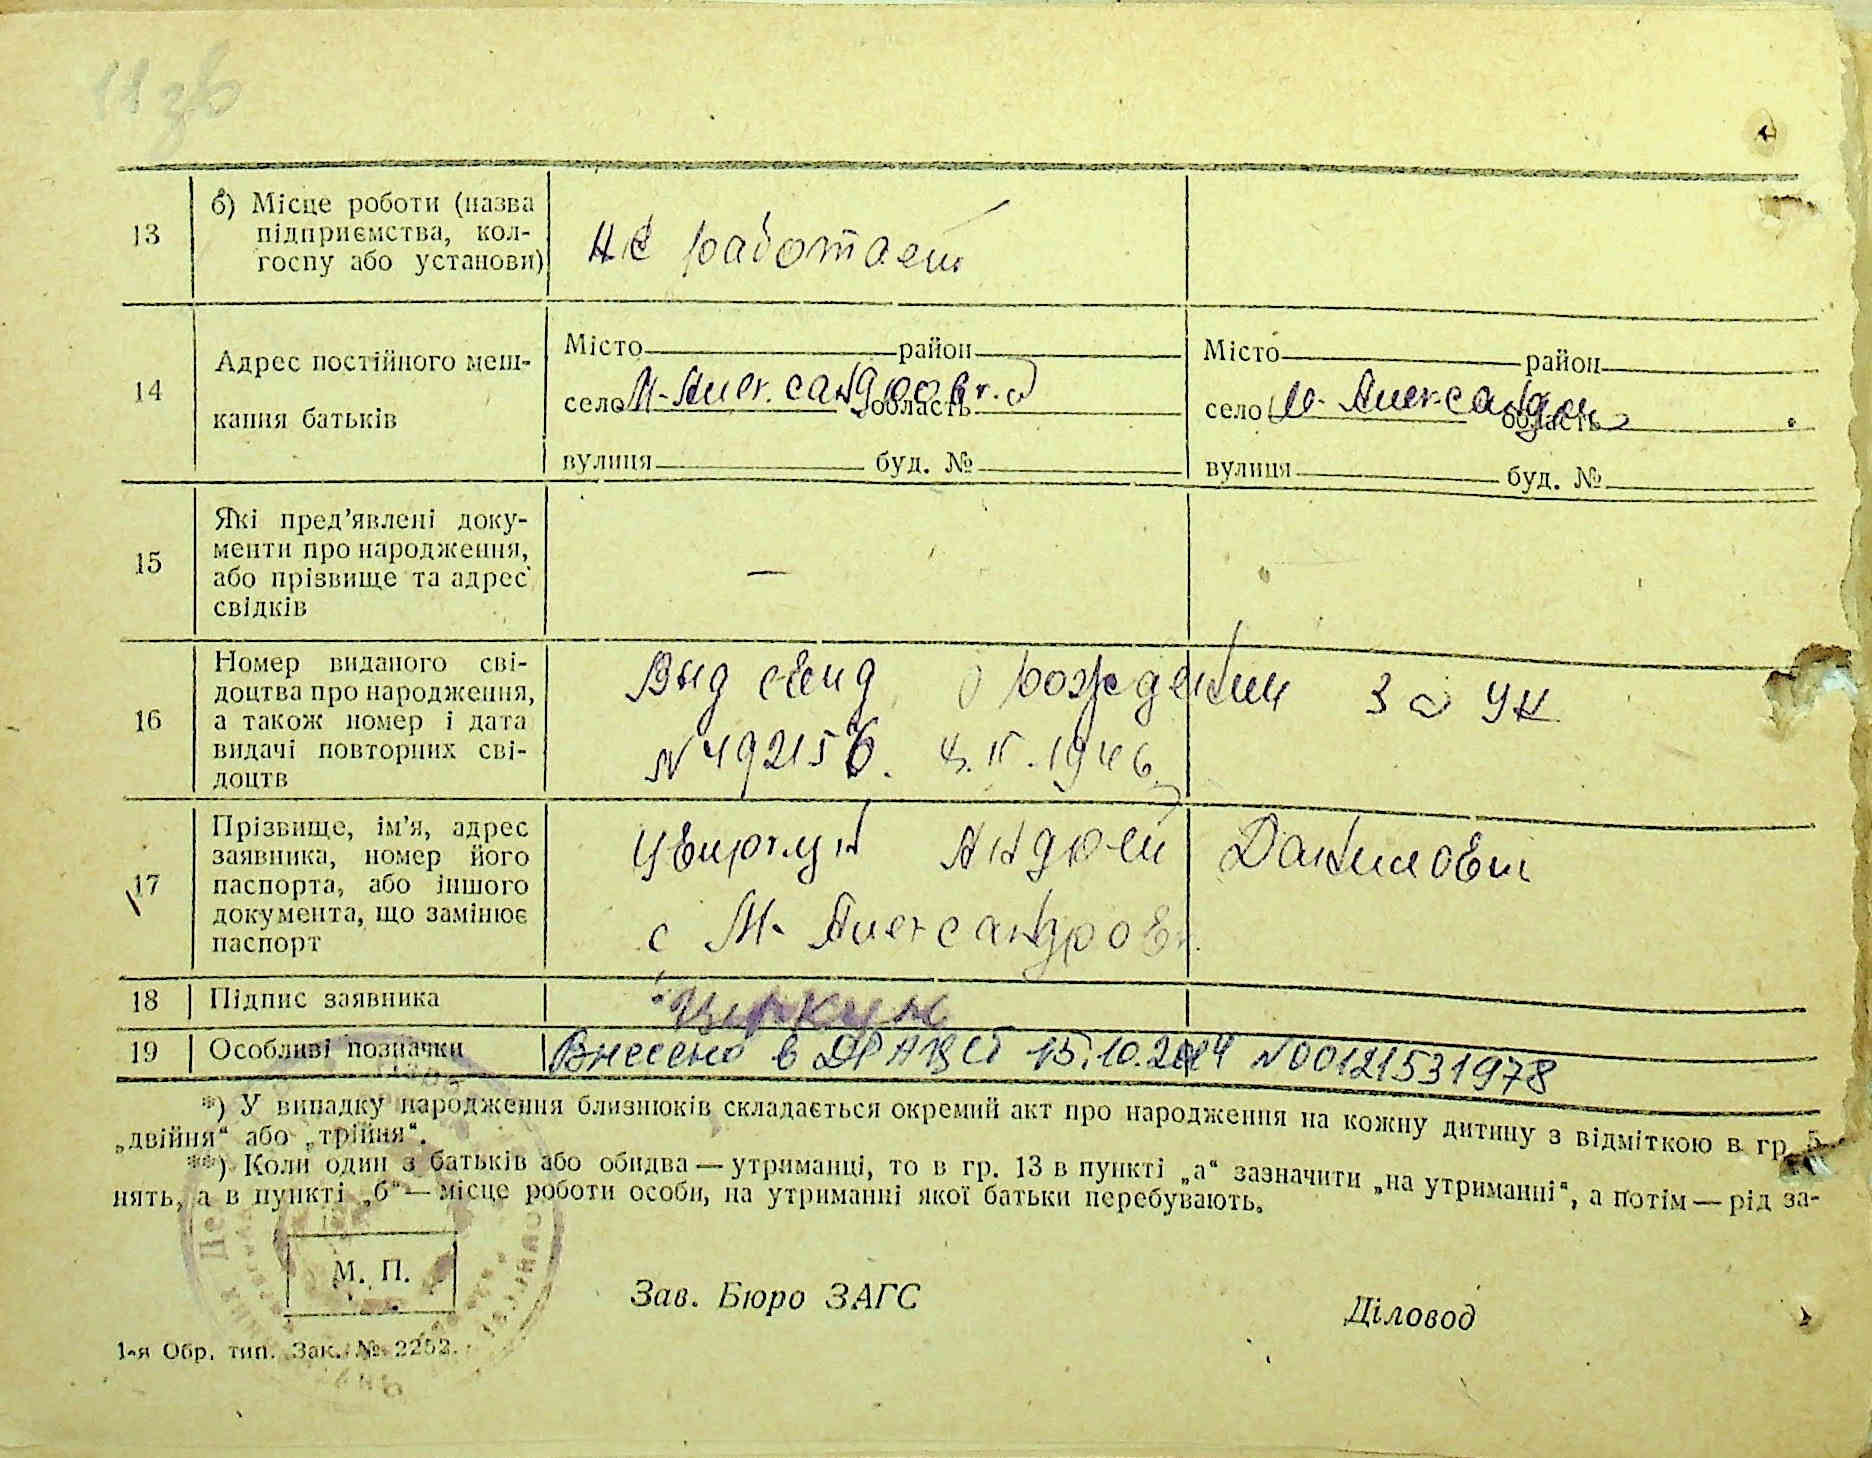 11 зв
13
б) Місце роботи (назва
підприємства, кол-
госпу або установи)
не работает
14
Адрес постійного меш-
кання батьків
Місто район
село М-Александровка область
вулиця буд. №
Місто район
село М-Александров область
вулиця буд. №
15
Які пред'явлені доку-
менти про народження,
або прізвище та адрес
свідків
—
16
Номер виданого сві-
доцтва про народження,
а також номер і дата
видачі повторних сві-
доцтв
Выд свид о рождении
№492156. 1946
17
Прізвище, ім'я, адрес
заявника, номер його
паспорта, або іншого
документа, що замінює
паспорт
Андрей Данилович
с М-Александровк
18
Підпис заявника
19
Особливі позначки
Внесено в ДРАЦСГ 15.10.2024 №00121531978
*) У випадку народження близнюків складається окремий акт про народження на кожну дитину з відміткою в гр. 5
„двійня“ або „трійня“.
**) Коли один з батьків або обидва — утриманці, то в гр. 13 в пункті „а“ зазначити „на утриманні“, а потім — рід за-
нять, а в пункті „б“ — місце роботи особи, на утриманні якої батьки перебувають.
М. П.
Зав. Бюро ЗАГС
Діловод
1-я Обр. тип. Зак. № 2252.